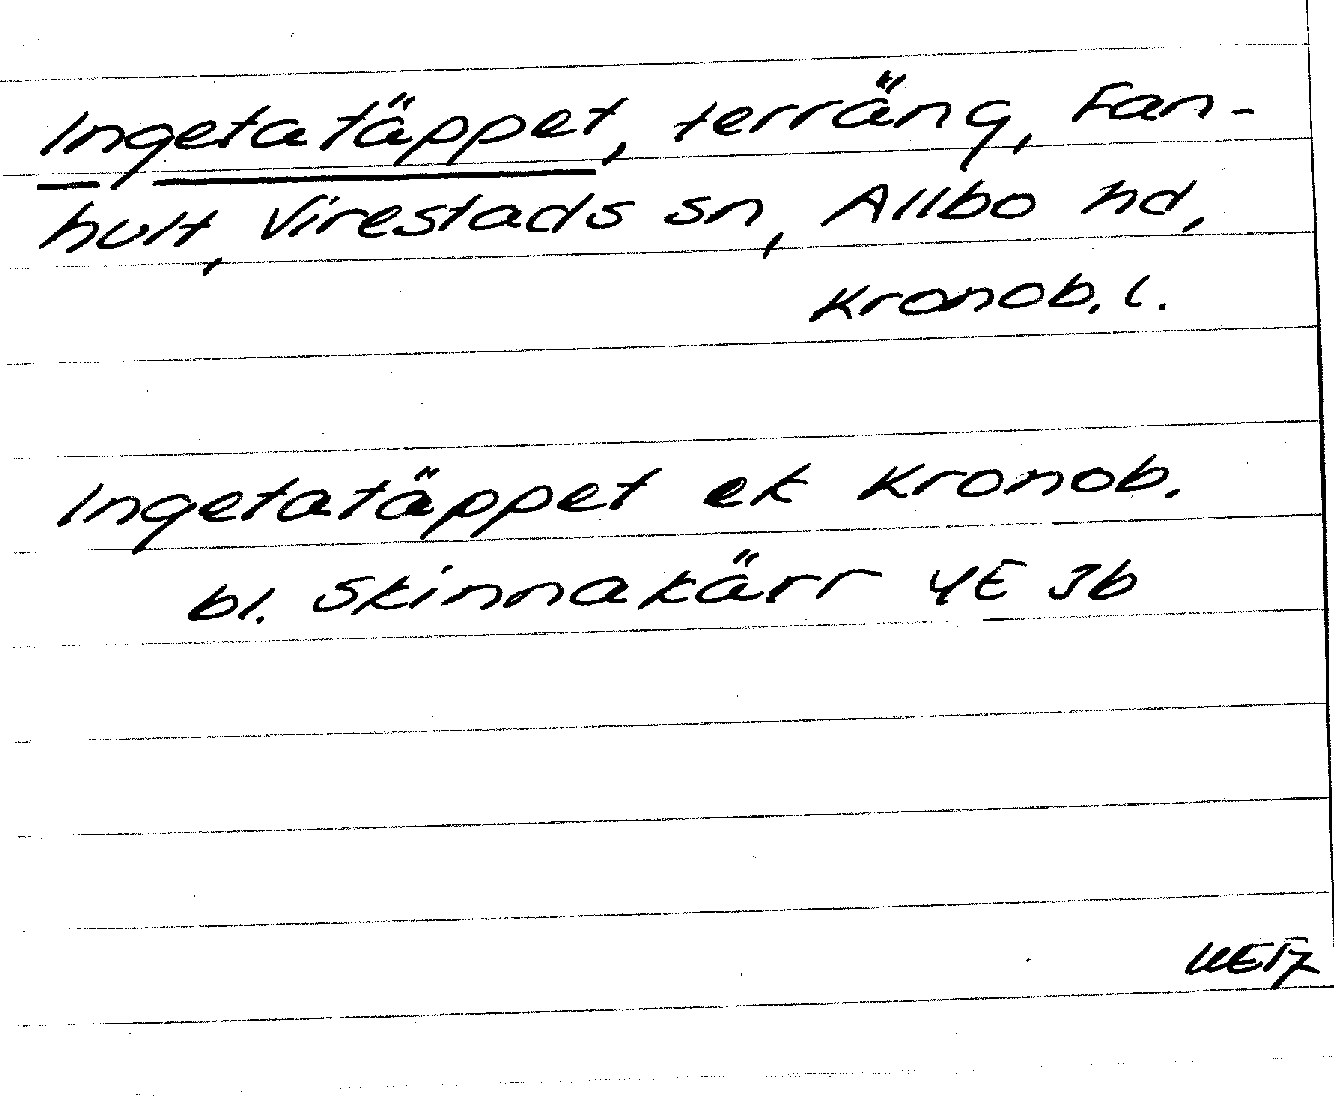 Ingetatäppet, terräng, Fan-
hult, Virestads sn, Allbo hd,
Kronob. l.
Ingetatäppet ek Kronob.
bl. Skinnakärr 4E 3b